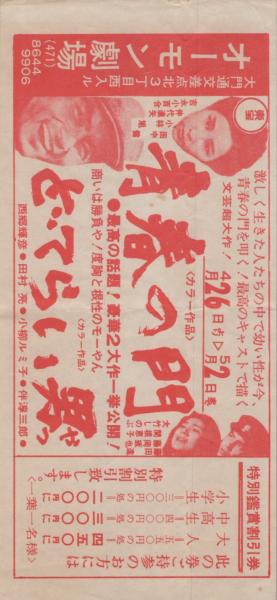 オーモン劇場
大門通交差点北3丁目西入ル
(471)
8644
9906
東宝
激しく生きた人たちの中で幼い性が今、
青春の門を叩く!最高のキャストで描く
文芸超大作!
4月26日から5月2日まで
吉永小百合
仲代達矢
小林旭
田中健
青春の門
〈カラー作品〉
関根恵子
大竹しのぶ
●最高の話題!豪華2大作一挙公開!
商いは勝負や!度胸と根性のモーやん
どてらい男
やつ
〈カラー作品〉
西郷輝彦・田村亮・小柳ルミ子・伴淳三郎
特別鑑賞割引券
此の券のご持参のお方には
特別割引致します。
〈一葉一名様〉